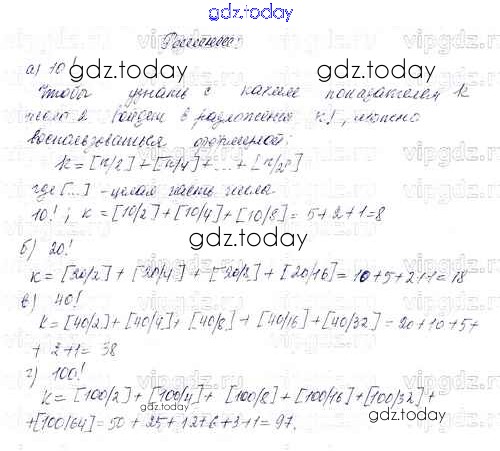 gdz.today
Решение:
а) 10!
gdz.today
Чтобы узнать с каким показателем k
число 2 войдет в разложение k!, можно
воспользоваться формулой:
k = [n/2] + [n/4] + ... + [n/2ᵏ]
где [...] - целая часть числа
10! ; k = [10/2] + [10/4] + [10/8] = 5+2+1=8
gdz.today
б) 20!
k = [20/2] + [20/4] + [20/8] + [20/16] = 10+5+2+1=18
gdz.today
в) 40!
k = [40/2] + [40/4] + [40/8] + [40/16] + [40/32] = 20+10+5+
+ 2+1= 38
gdz.today
г) 100!
k = [100/2] + [100/4] + [100/8] + [100/16] + [100/32] +
+[100/64] = 50 + 25 + 12+6+3+1= 97.
gdz.today